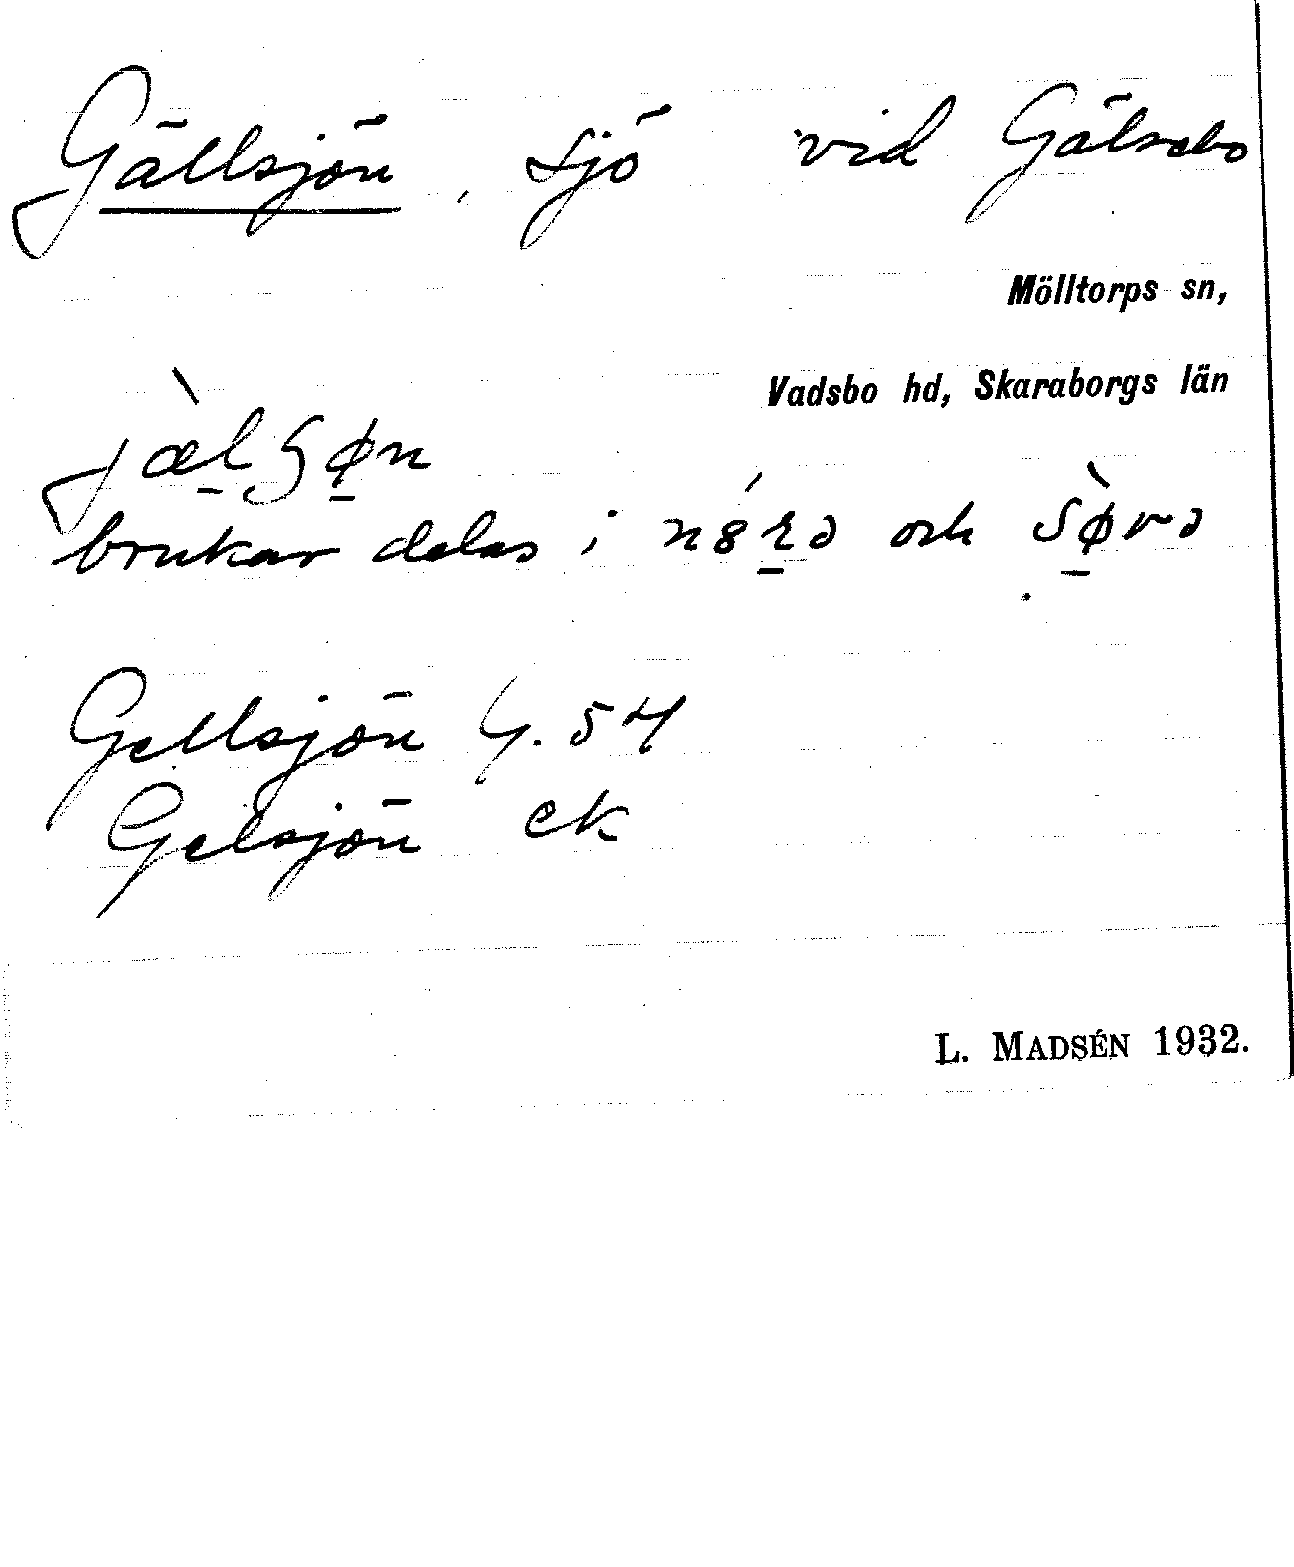 Gällsjön, sjö vid Gälsebo
Mölltorps sn,
Vadsbo hd, Skaraborgs län
jæ̀lʒøn
brukar delas i nȣ́rə och sø̀rə
Gellsjön G. 54
Gelsjön ek
L. MADSÉN 1932.